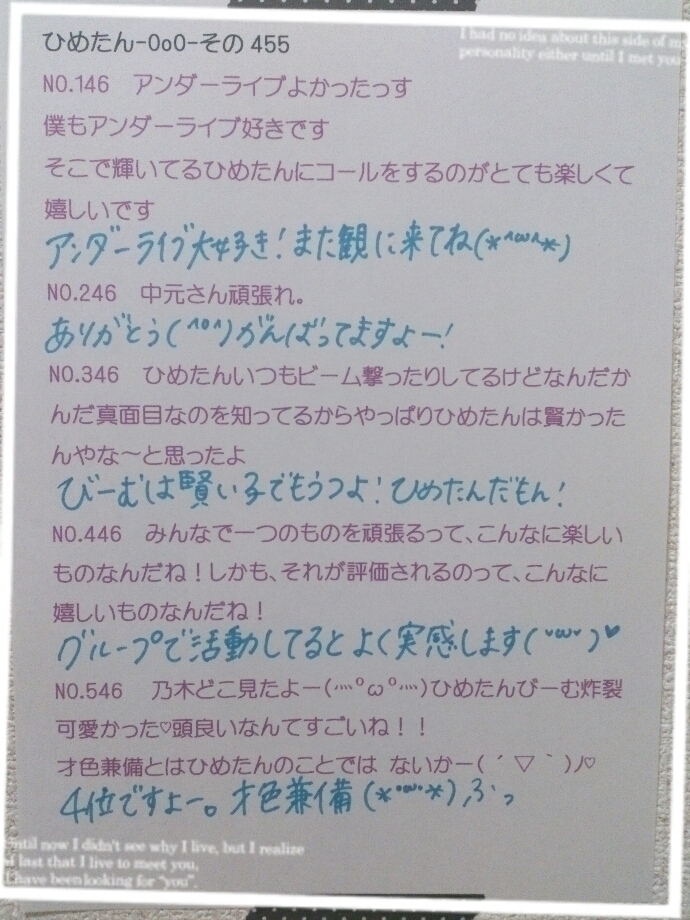 ひめたん-OoO-その455
I had no idea about this side of my
personality either until I met you
NO.146　アンダーライブよかったっす
僕もアンダーライブ好きです
そこで輝いてるひめたんにコールをするのがとても楽しくて
嬉しいです
アンダーライブ大好き!また観に来てね(*^ω^*)
NO.246　中元さん頑張れ。
ありがとう(^o^)がんばってますよー!
NO.346　ひめたんいつもビーム撃ったりしてるけどなんだか
んだ真面目なのを知ってるからやっぱりひめたんは賢かった
んやな～と思ったよ
びーむは賢い子でもうつよ!ひめたんだもん!
NO.446　みんなで一つのものを頑張るって、こんなに楽しい
ものなんだね！しかも、それが評価されるのって、こんなに
嬉しいものなんだね！
グループで活動してるとよく実感します(˘ω˘)♥
NO.546　乃木どこ見たよー(灬ºωº灬)ひめたんびーむ炸裂
可愛かった♡頭良いなんてすごいね！！
才色兼備とはひめたんのことでは ないかー( ´ ▽ ` )ﾉ♡
4位ですよー。才色兼備(*•ω•*)ふっ
Until now I didn't see why I live, but I realize
at last that I live to meet you.
I have been looking for "you".